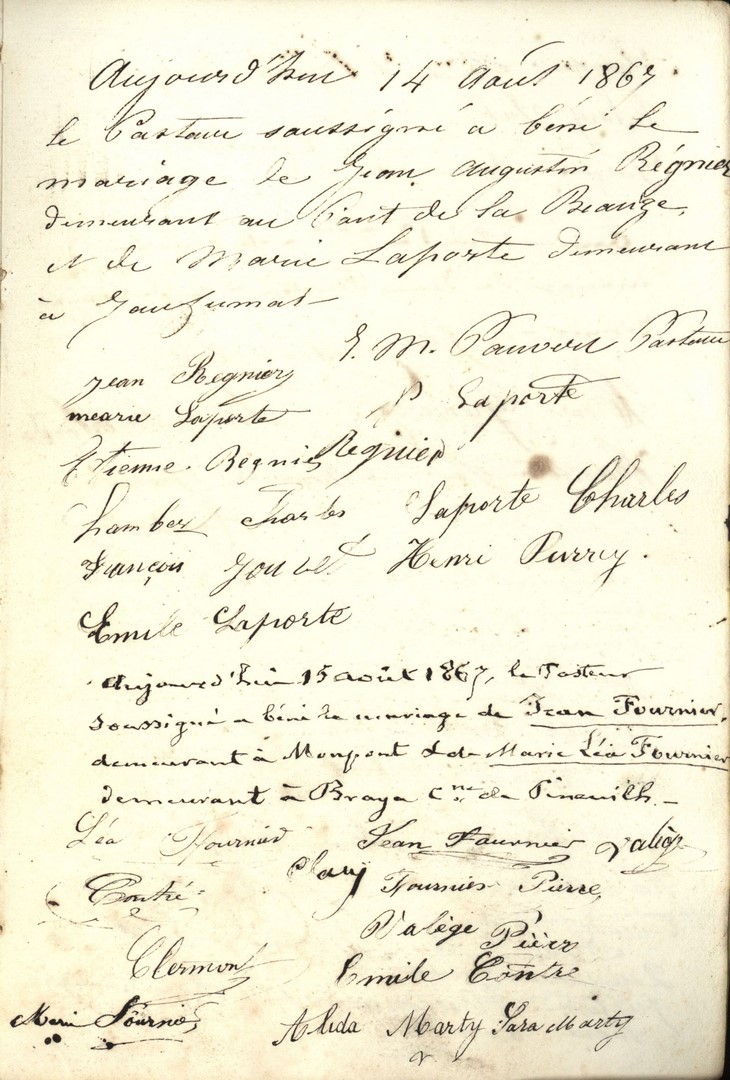 Aujourd'hui 14 Août 1867
le Pasteur soussigné a béni le
mariage de Jean Augustin Régnier
demeurant au Pont de la Beauze,
et de Marie Laporte demeurant
à
E. M. Pauvert Pasteur
Jean Regnier
P Laporte
mearie Laporte
Etienne. Regnier Régnier
Chambez Charles Laporte Charles
François Henri Purrey.
Emile Laporte
Aujourd'hui 15 août 1867, le Pasteur
soussigné a béni le mariage de Jean Fournier,
demeurant à Monpont & de Marie Léa Fournier
demeurant à Braya Cne de Pineuilh. -
Léa Fournier Jean Fournier
Fournier Pierre
Contré
Valège Pierre
Clermont Emile Contre
Marie Fournier Alida Marty Sara Marty